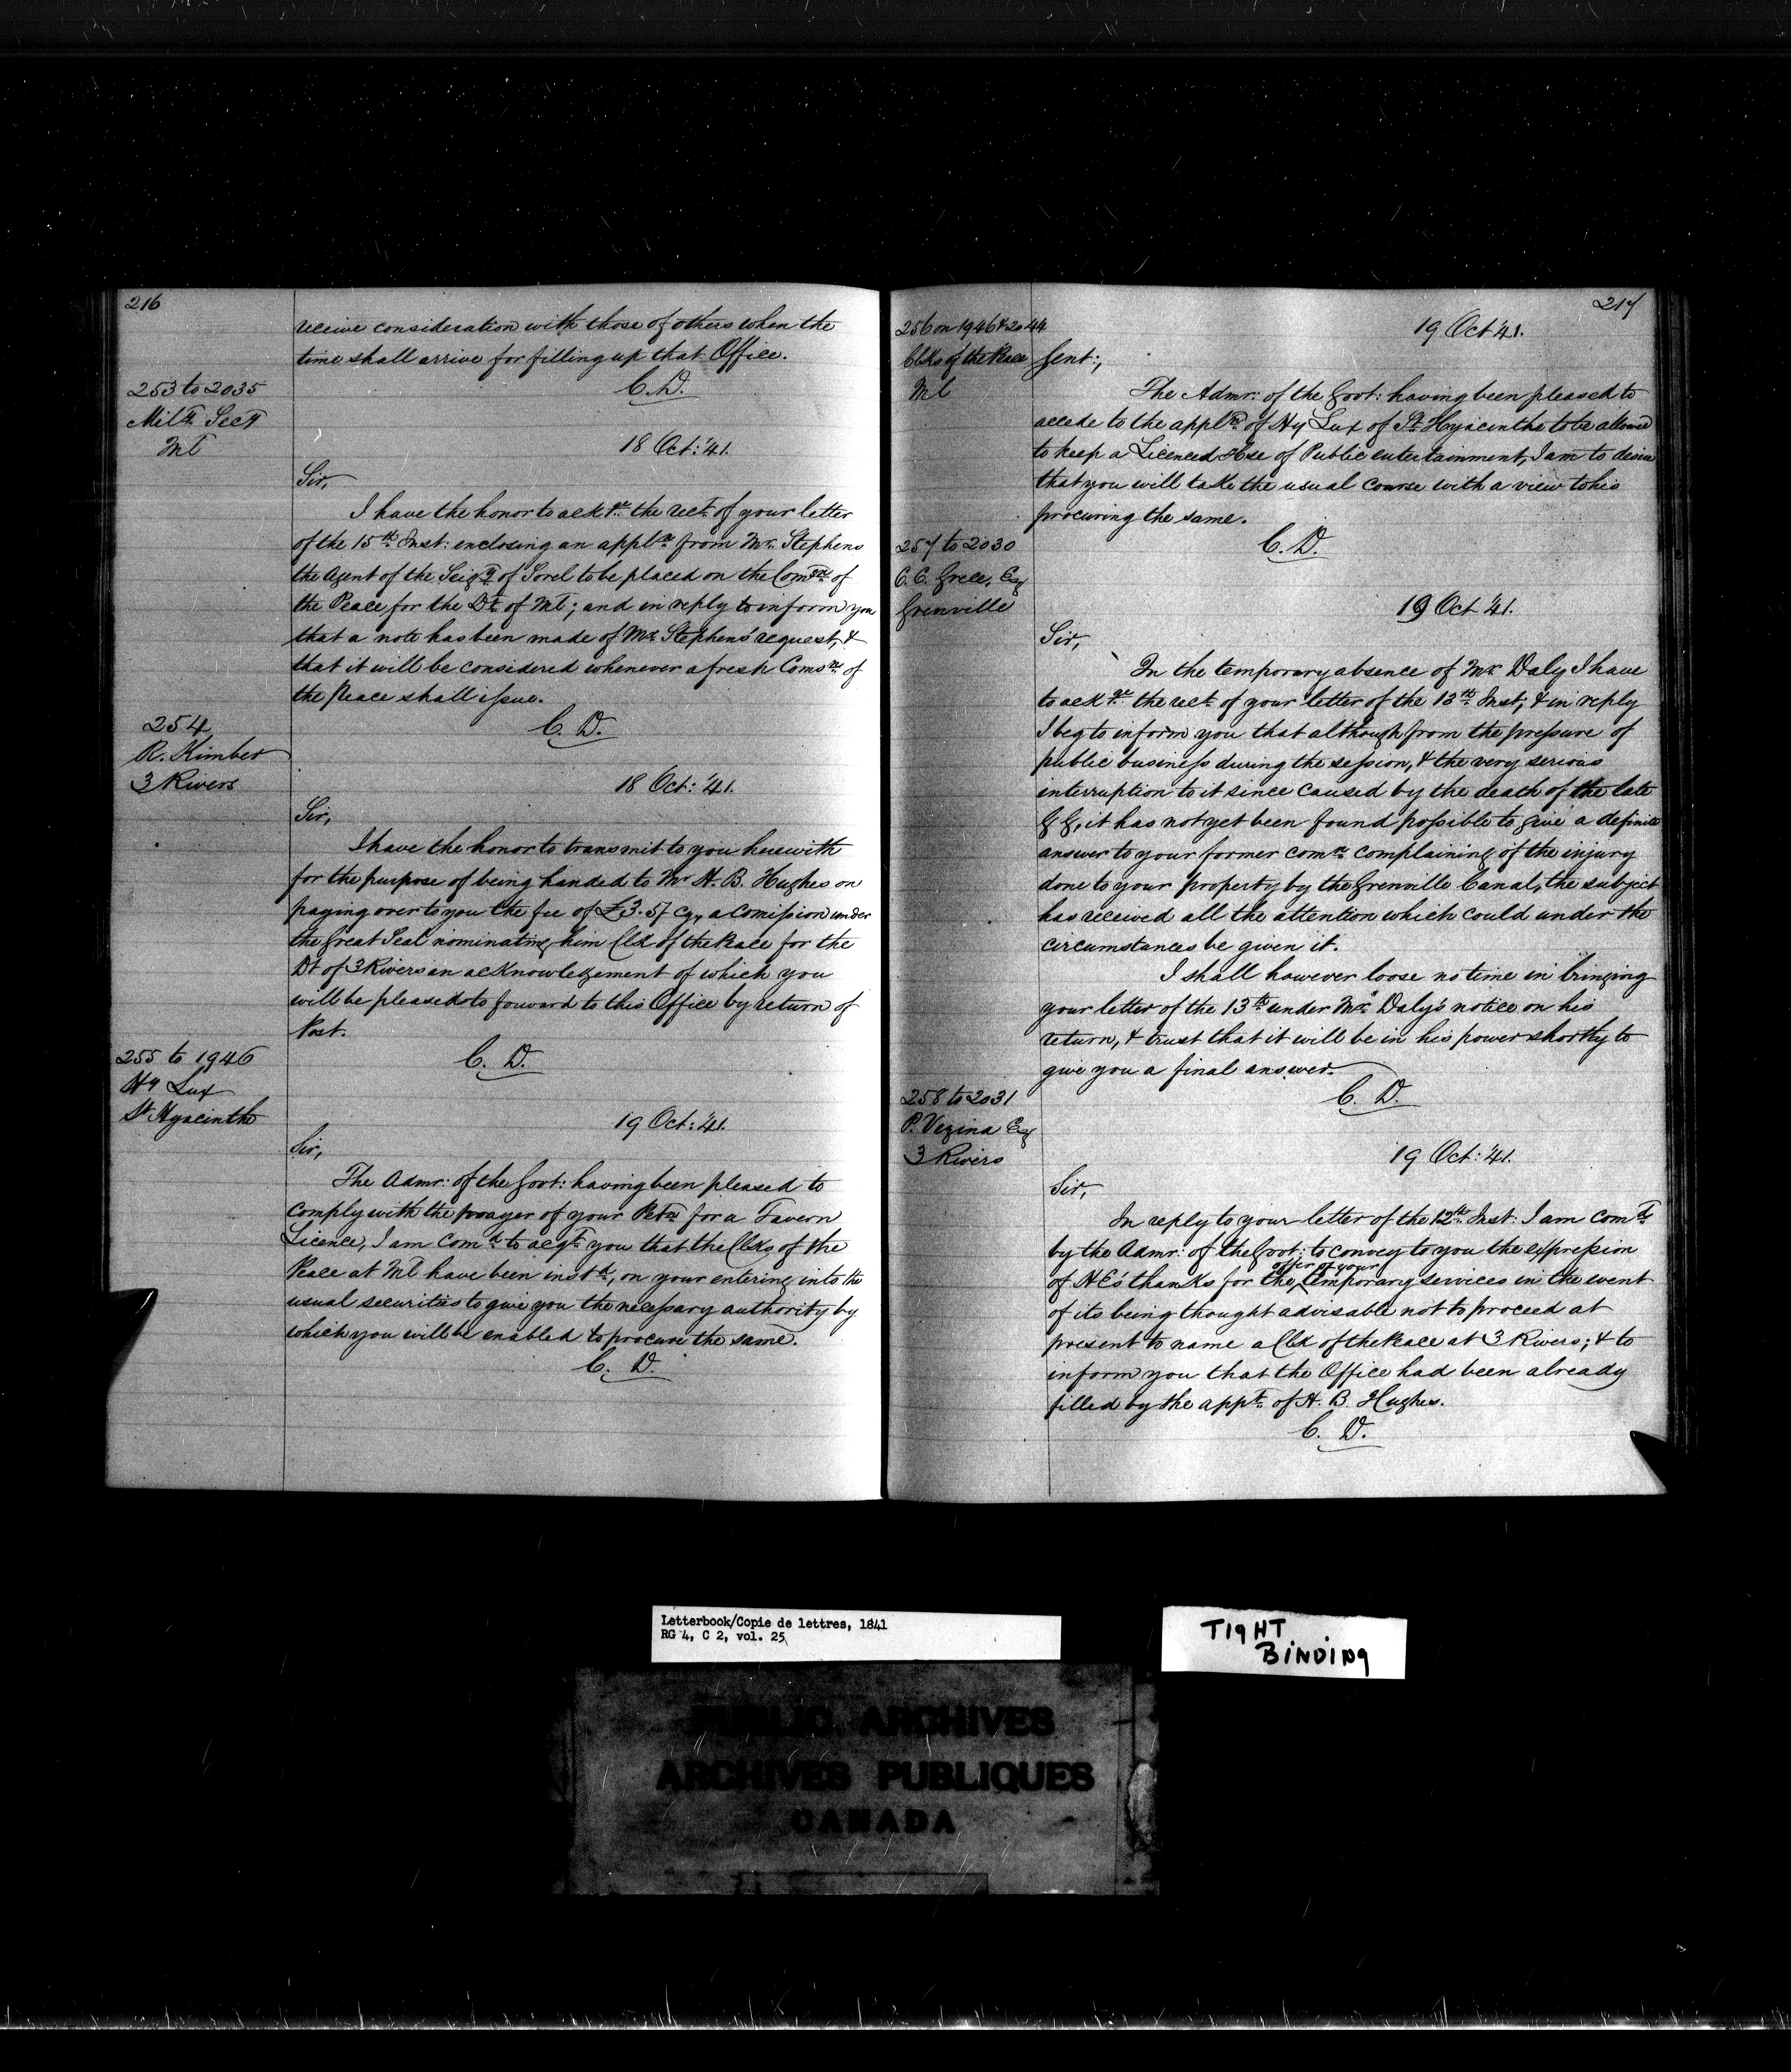 216
receive consideration with those of others when the
time shall arrive for filling up that Office.
C. D.
253 to 2035
Milty Secy
Ml
18 Oct: '41.
Sir,
I have the honor to ackge the rect of your letter
of the 15th Inst: enclosing an appln from Mr. Stephens
the Agent of the Seigy of Sorel to be placed on the Comsn of
the Peace for the Dt of Ml; and in reply to inform you
that a note has been made of Mr Stephens' request, &
that it will be considered whenever a fresh Comsn of
the Peace shall issue.
C. D.
254
R. Kimber
3 Rivers
18 Oct: '41.
Sir,
I have the honor to transmit to you herewith
for the purpose of being handed to Mr H. B. Hughes on
paying over to you the fee of £3.5/ cy, a Comission under
the Great Seal nominating him Clk of the Peace for the
Dt of 3 Rivers an acknowlegement of which you
will be pleased to forward to this Office by return of
Post.
C. D.
255 to 1946
Hy Lux
St Hyacinthe
19 Oct: '41.
Sir,
The Admr: of the Govt: having been pleased to
comply with the prayer of your Petn for a Tavern
Licence, I am comd to acqt you that the Clks of the
Peace at Ml have been instd, on your entering into the
usual securities to give you the necessary authority by
which you will be enabled to procure the same.
C. D.
217
256 on 1946 & 2044
Clks of the Peace
Ml
19 Oct '41.
Gent:,
The Admr: of the Govt: having been pleased to
accede to the appln of Hy Lux of St Hyacinthe to be allowed
to keep a Licenced Hse of Public entertainment, I am to desire
that you will take the usual course with a view to his
procuring the same.
C. D.
257 to 2030
C. C. Grece, Esq
Grenville
19 Oct '41.
Sir,
In the temporary absence of Mr Daly I have
to ackge the rect of your letter of the 13th Inst; & in reply
I beg to inform you that although from the pressure of
public business during the session, & the very serious
interruption to it since caused by the death of the late
G G, it has not yet been found possible to give a definite
answer to your former comn complaining of the injury
done to your property by the Grenville Canal, the subject
has received all the attention which could under the
circumstances be given it.
I shall however loose no time in bringing
your letter of the 13th under Mr Daly's notice on his
return, & trust that it will be in his power shortly to
give you a final answer.
C. D.
258 to 2031
P. Vezina Esq
3 Rivers
19 Oct: '41.
Sir,
In reply to your letter of the 12th Inst: I am comd
by the Admr: of the Govt: to convey to you the expression
offer of your
of HE's thanks for the temporary services in the event
of its being thought advisable not to proceed at
present to name a Clk of the Peace at 3 Rivers; & to
inform you that the Office had been already
filled by the appt of H. B. Hughes.
C. D.
Letterbook/Copie de lettres, 1841
RG 4, C 2, vol. 25
TIGHT
BINDING
PUBLIC ARCHIVES
ARCHIVES PUBLIQUES
CANADA